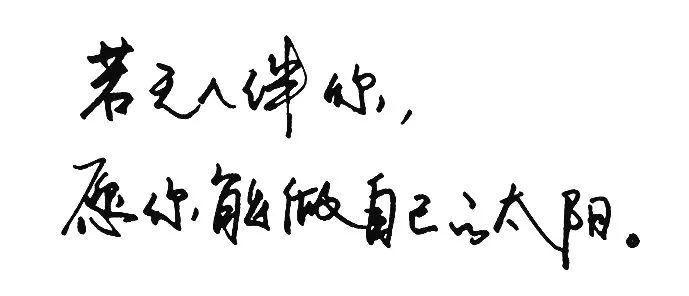 若无人伴你，
愿你能做自己的太阳。